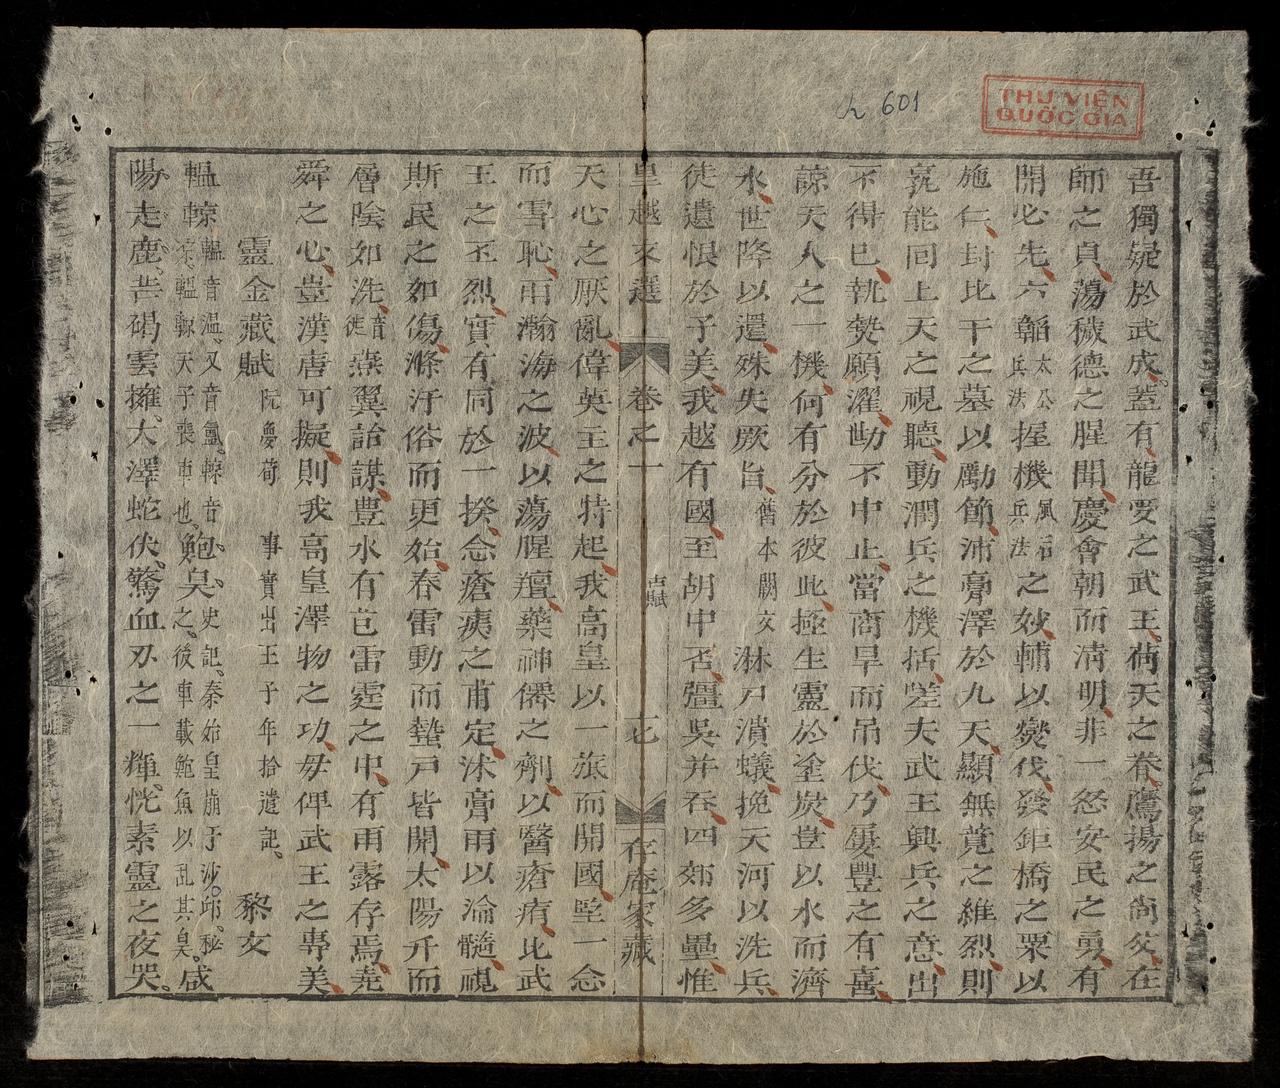 九601
THƯ VIỆN
QUỐC GIA
吾獨疑於武成。蓋有龍受之武王、荷天之眷、鷹揚之尚父、在
師之貞、蕩穢德之腥聞、慶會朝而清明、非一怒安民之勇、有
開必先、六韜太公兵法握機風后兵法之妙、輔以燮伐、發鉅橋之粟以
施仁、封比干之墓以勵節、沛膏澤於九天、顯無競之維烈、則
孰能回上天之視聽、動濶兵之機括、嗟夫武王興兵之意出
不得已、執熱願濯、勘不中止、當商旱而吊伐、乃屢豐之有喜、
諒天人之一機、何有分於彼此、極生靈於塗炭、豈以水而濟
水、世降以還、殊失厥旨、舊本闕文淋尸潰蟻、挽天河以洗兵、
徒遺恨於子美、我越有國、至胡中否、彊吳并吞、四郊多壘、惟
皇越文選 卷之一 古賦 七 存庵家藏
天心之厭亂、偉英王之特起、我高皇以一旅而開國、堅一念
而雪恥、雨瀚海之波、以蕩腥羶、藥神僊之劑、以醫瘡痏、比武
王之丕烈、實有同於一揆、念瘡痍之甫定、沐膏雨以淪髓、視
斯民之如傷、滌汙俗而更始、春雷動而蟄戶皆開、太陽升而
層陰如洗、音徙燕翼詒謀、豊水有芑、雷霆之中、有雨露存焉、堯
舜之心、豈漢唐可擬、則我高皇澤物之功、毋俾武王之專美、
靈金藏賦 阮慶荷 事實出王子年拾遺記、 黎文
轀輬轀音溫、又音氲、輬音凉、轀輬天子喪車也、鮑臭、史記、秦始皇崩于沙邱、秘之、後車載鮑魚以乱其臭。咸
陽走鹿、芒碭雲擁、大澤蛇伏、驚血刃之一輝、恍素靈之夜哭。